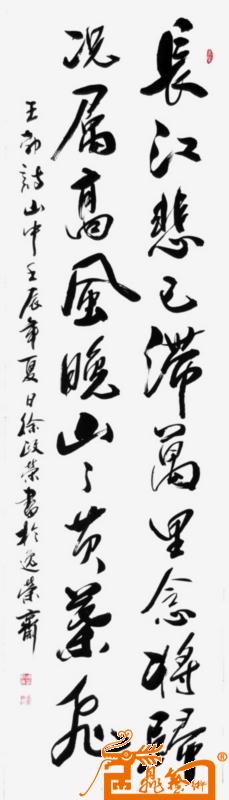 長江悲已滯萬里念將歸
况属高風晚山々黄葉飛
王勃詩山中壬辰年夏日徐政荣書於逸荣齋